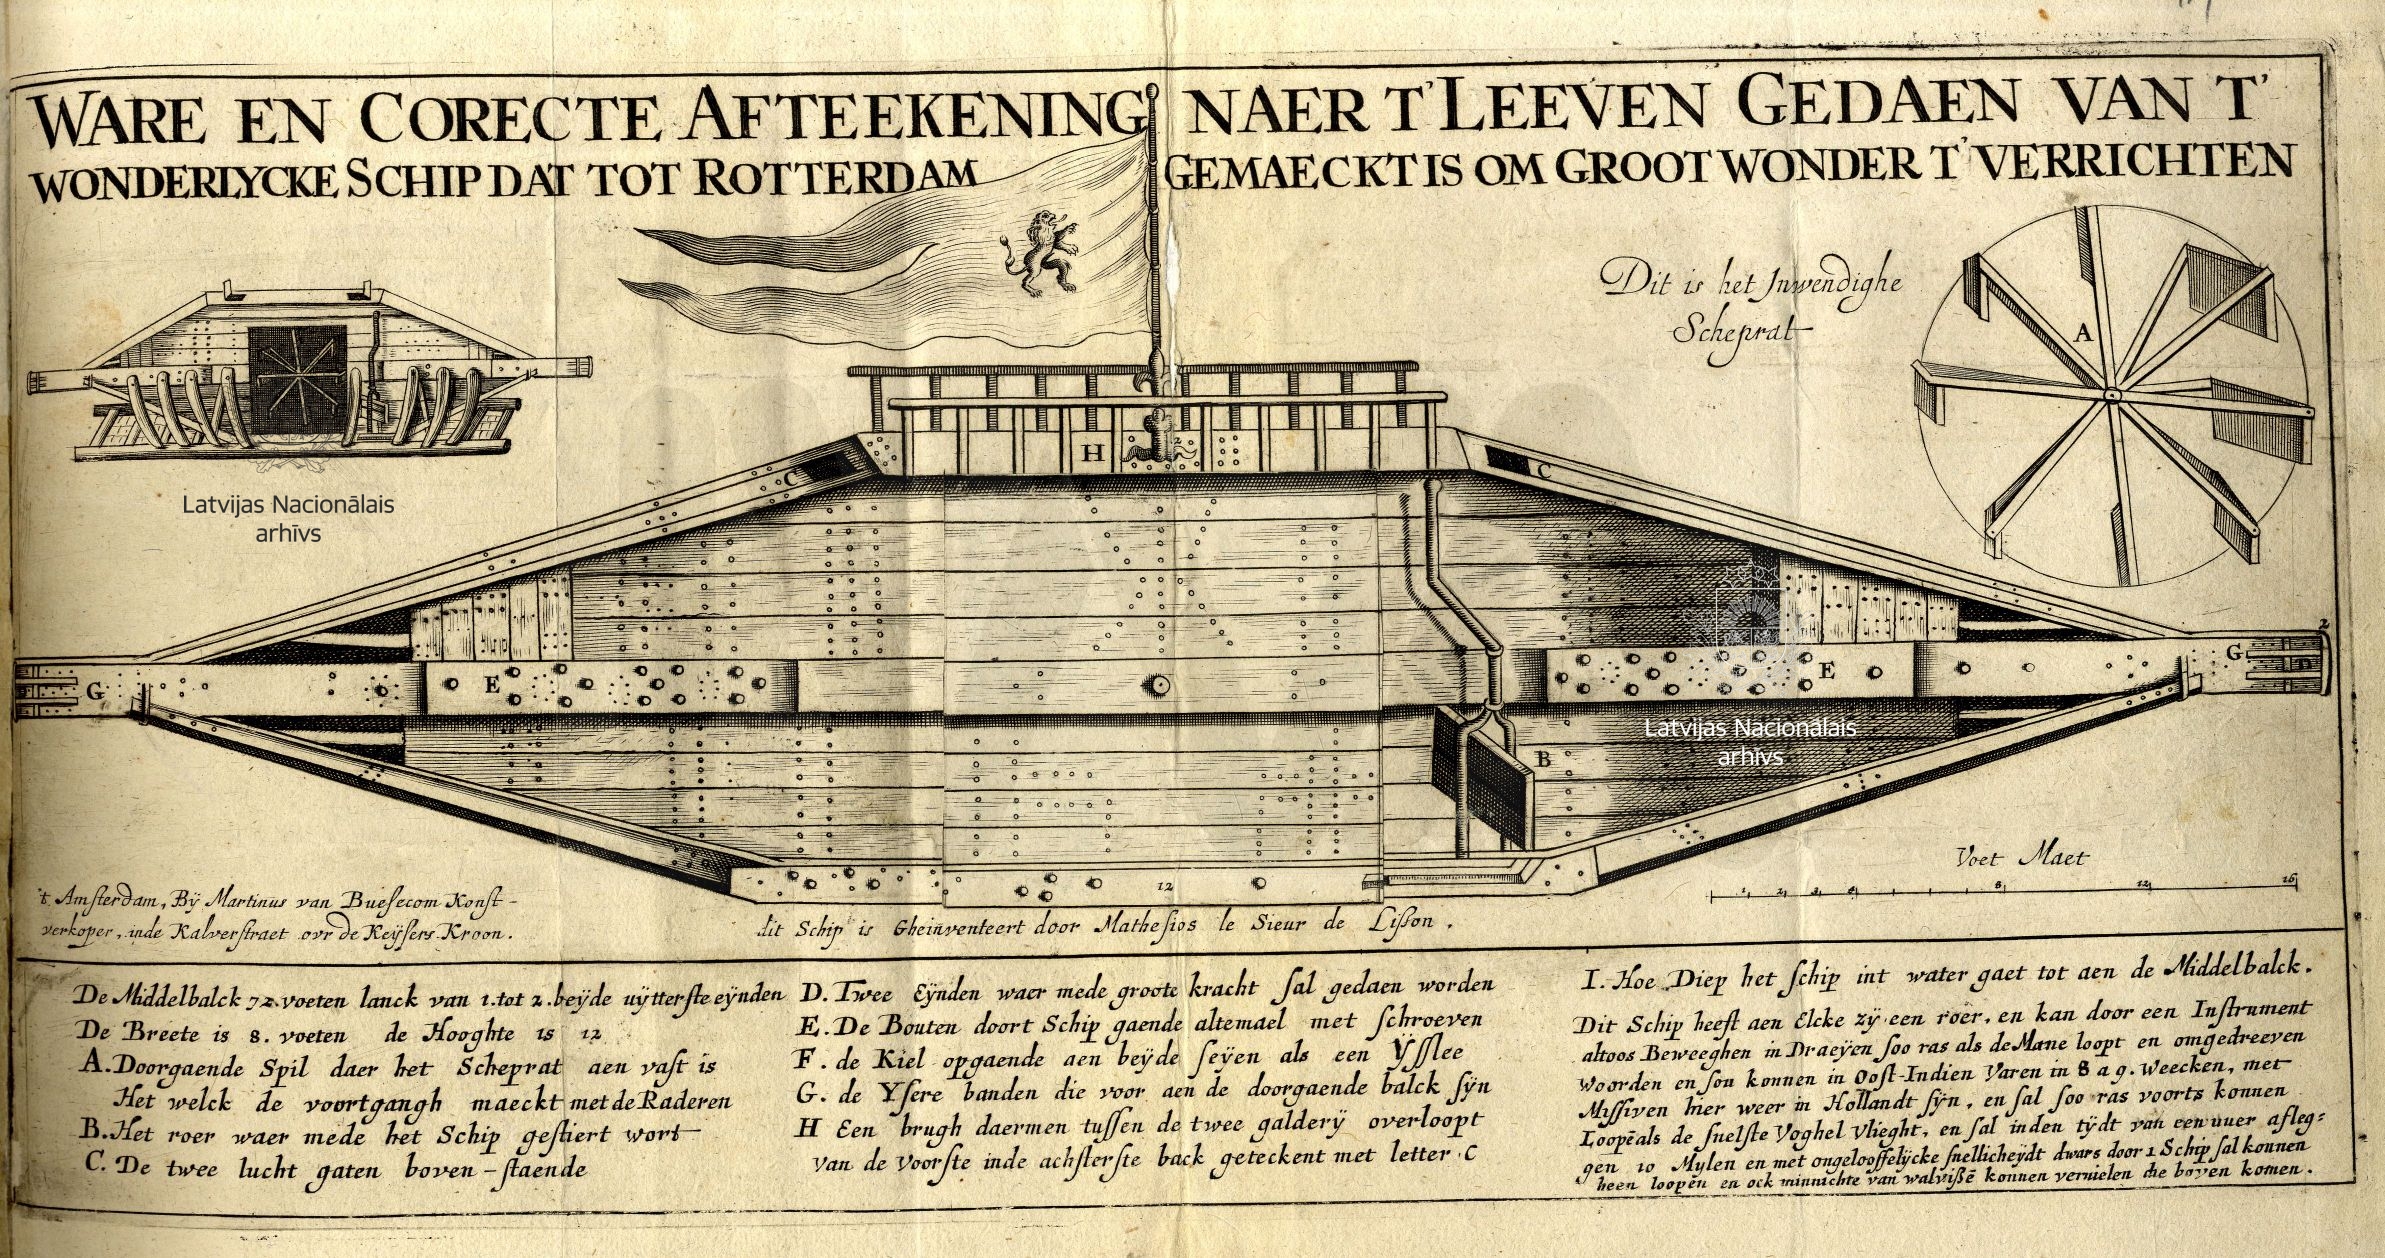 WARE EN CORECTE AFTEEKENING NAER T'LEEVEN GEDAEN VAN T'
WONDERLYCKE SCHIP DAT TOT ROTTERDAM GEMAECKT IS OM GROOT WONDER T'VERRICHTEN
Dit is het Inwendighe
Scheprat
A
H
C
C
Latvijas Nacionālais
arhīvs
G
E
E
G
D
2
B
Latvijas Nacionālais
arhīvs
12
Voet Maet
1 2 3 4 8 12 16
't Amsterdam, Bÿ Martinus van Buesecom Konst-
verkoper, inde Kalverstraet ovr de Keÿsers Kroon.
dit Schip is Gheinventeert door Mathesios le Sieur de Lisson.
De Middelbalck 72. voeten lanck van 1. tot 2. beÿde uÿtterste eÿnden
De Breete is 8. voeten de Hooghte is 12
A. Doorgaende Spil daer het Scheprat aen vast is
Het welck de voortgangh maeckt met de Raderen
B. Het roer waer mede het Schip gestiert wort
C. De twee lucht gaten boven-staende
D. Twee Eÿnden waer mede groote kracht sal gedaen worden
E. De Bouten doort Schip gaende altemael met schroeven
F. de Kiel opgaende aen beÿde seÿen als een Ÿsslee
G. de Ysere banden die voor aen de doorgaende balck sÿn
H Een brugh daermen tussen de twee galderÿ overloopt
van de voorste inde achsterste back geteckent met letter C
I. Hoe Diep het schip int water gaet tot aen de Middelbalck.
Dit Schip heeft aen Elcke zÿ een roer, en kan door een Instrument
altoos Beweeghen in Draeÿen soo ras als de Mane loopt en omgedreeven
woorden en sou konnen in Oost-Indien Varen in 8 a 9. Weecken, met
Missiven hier weer in Hollandt sÿn, en sal soo ras voorts konnen
Loopē als de snelste Voghel Vlieght, en sal inden tÿdt van een uuer afleg=
gen 10 Mylen en met ongelooffelÿcke snellicheÿdt dwars door 1 Schip sal konnen
heen loopen en ock minnichte van walvissē konnen vernielen die boven komen.